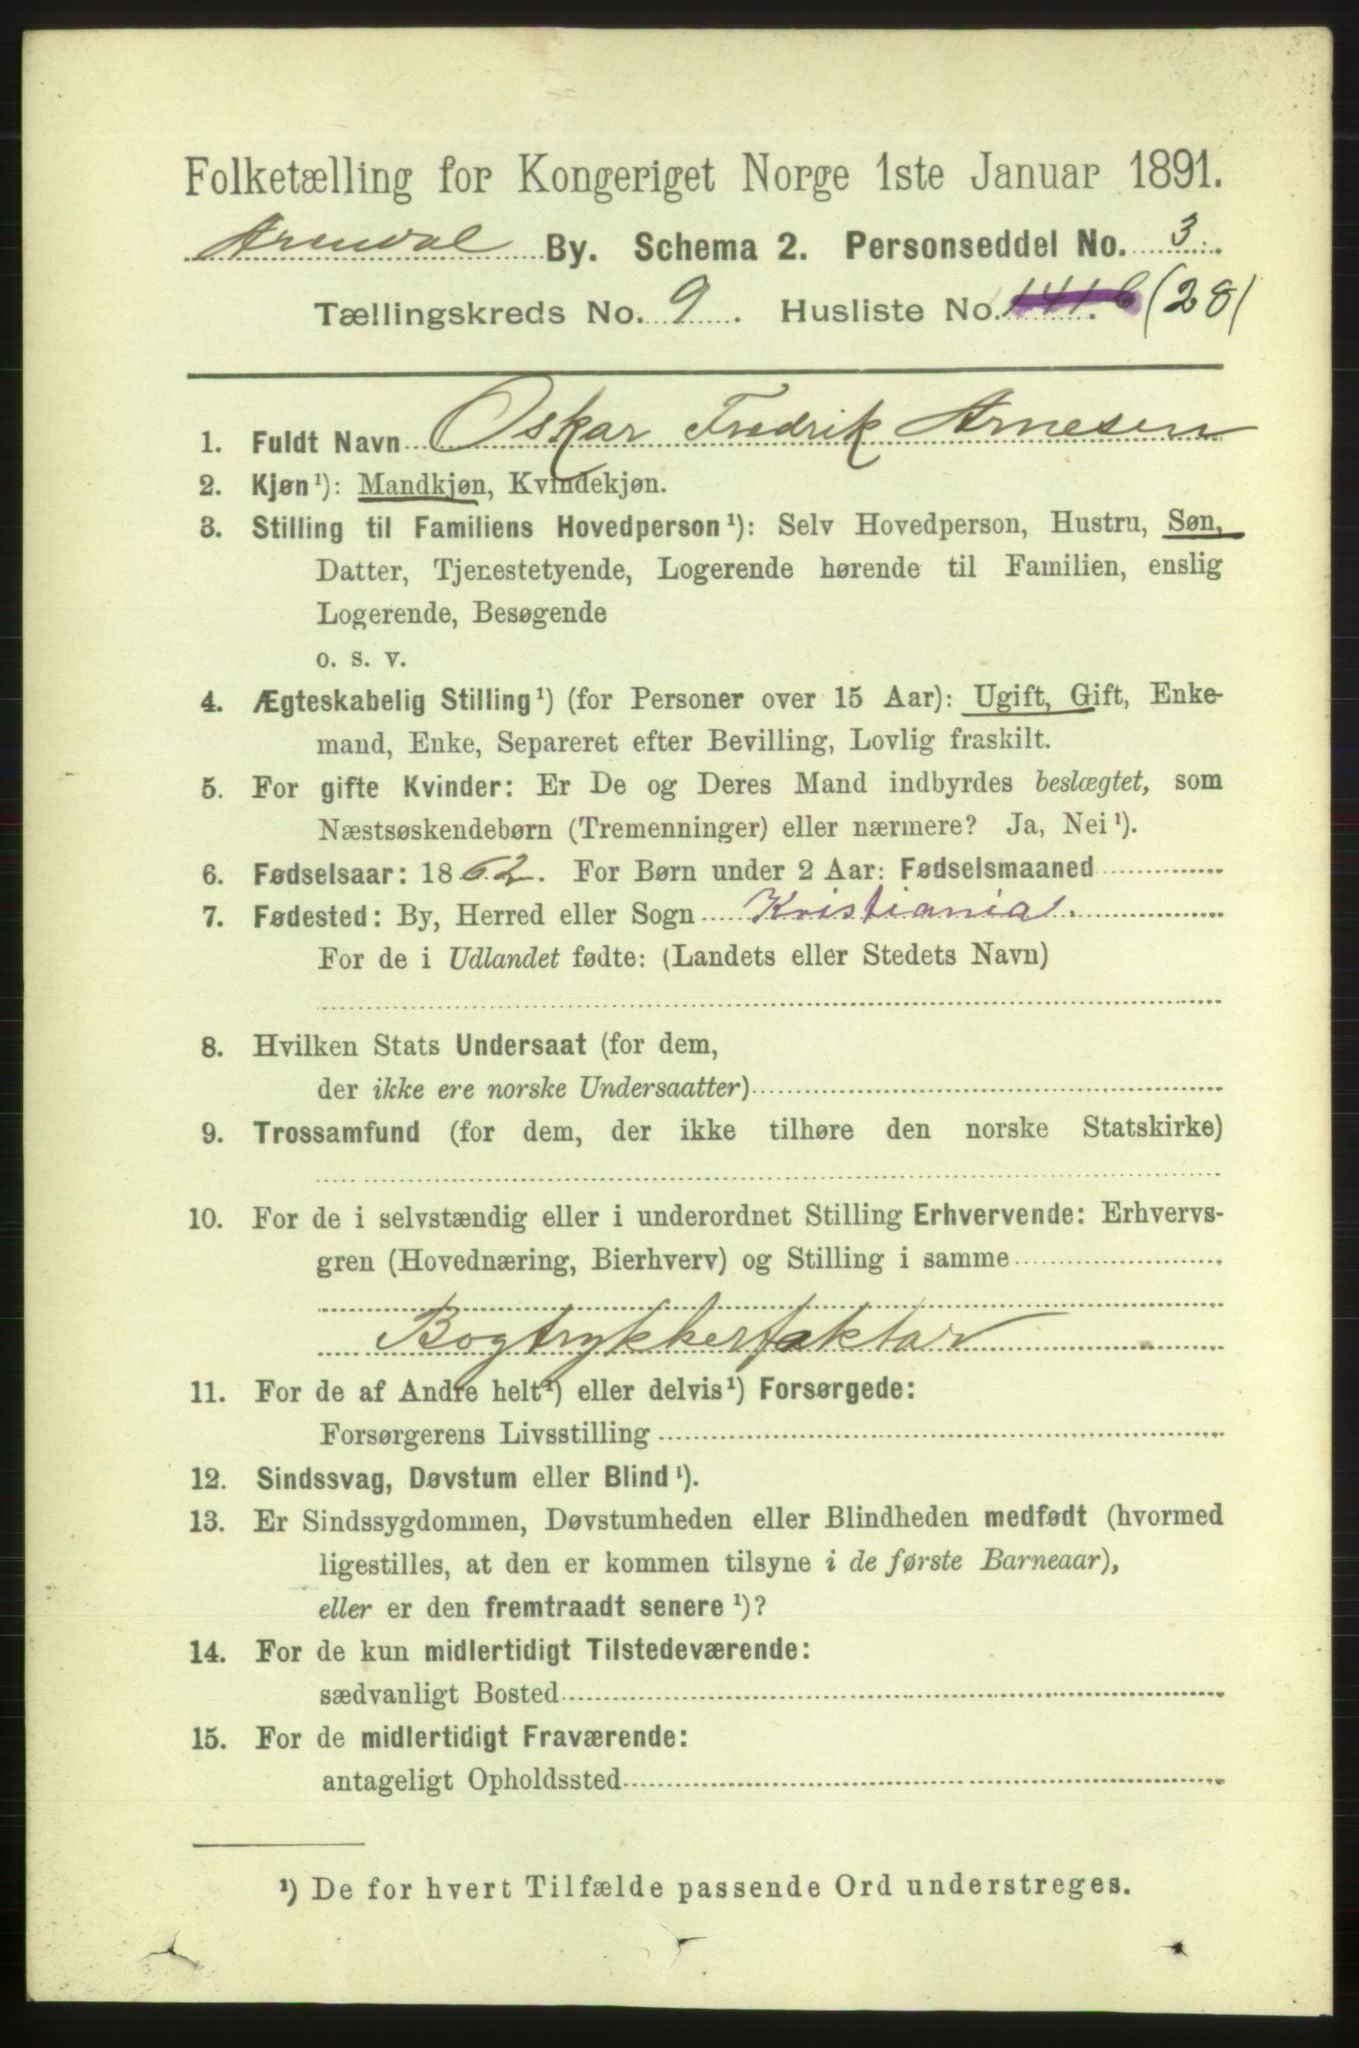 Folketælling for Kongeriget Norge 1ste Januar 1891.
Arendal By. Schema 2. Personseddel No. 3.
Tællingskreds No. 9. Husliste No. 141.b (28)
1. Fuldt Navn Oskar Fredrik Arnesen
2. Kjøn¹): Mandkjøn, Kvindekjøn.
3. Stilling til Familiens Hovedperson¹): Selv Hovedperson, Hustru, Søn,
Datter, Tjenestetyende, Logerende hørende til Familien, enslig
Logerende, Besøgende
o. s. v.
4. Ægteskabelig Stilling¹) (for Personer over 15 Aar): Ugift, Gift, Enke-
mand, Enke, Separeret efter Bevilling, Lovlig fraskilt.
5. For gifte Kvinder: Er De og Deres Mand indbyrdes beslægtet, som
Næstsøskendebørn (Tremenninger) eller nærmere? Ja, Nei¹).
6. Fødselsaar: 1862. For Børn under 2 Aar: Fødselsmaaned
7. Fødested: By, Herred eller Sogn Kristiania.
For de i Udlandet fødte: (Landets eller Stedets Navn)
8. Hvilken Stats Undersaat (for dem,
der ikke ere norske Undersaatter)
9. Trossamfund (for dem, der ikke tilhøre den norske Statskirke)
10. For de i selvstændig eller i underordnet Stilling Erhvervende: Erhvervs-
gren (Hovednæring, Bierhverv) og Stilling i samme
Bogtrykkerfaktor
11. For de af Andre helt¹) eller delvis¹) Forsørgede:
Forsørgerens Livsstilling
12. Sindssvag, Døvstum eller Blind¹).
13. Er Sindssygdommen, Døvstumheden eller Blindheden medfødt (hvormed
ligestilles, at den er kommen tilsyne i de første Barneaar),
eller er den fremtraadt senere¹)?
14. For de kun midlertidigt Tilstedeværende:
sædvanligt Bosted
15. For de midlertidigt Fraværende:
antageligt Opholdssted
¹) De for hvert Tilfælde passende Ord understreges.